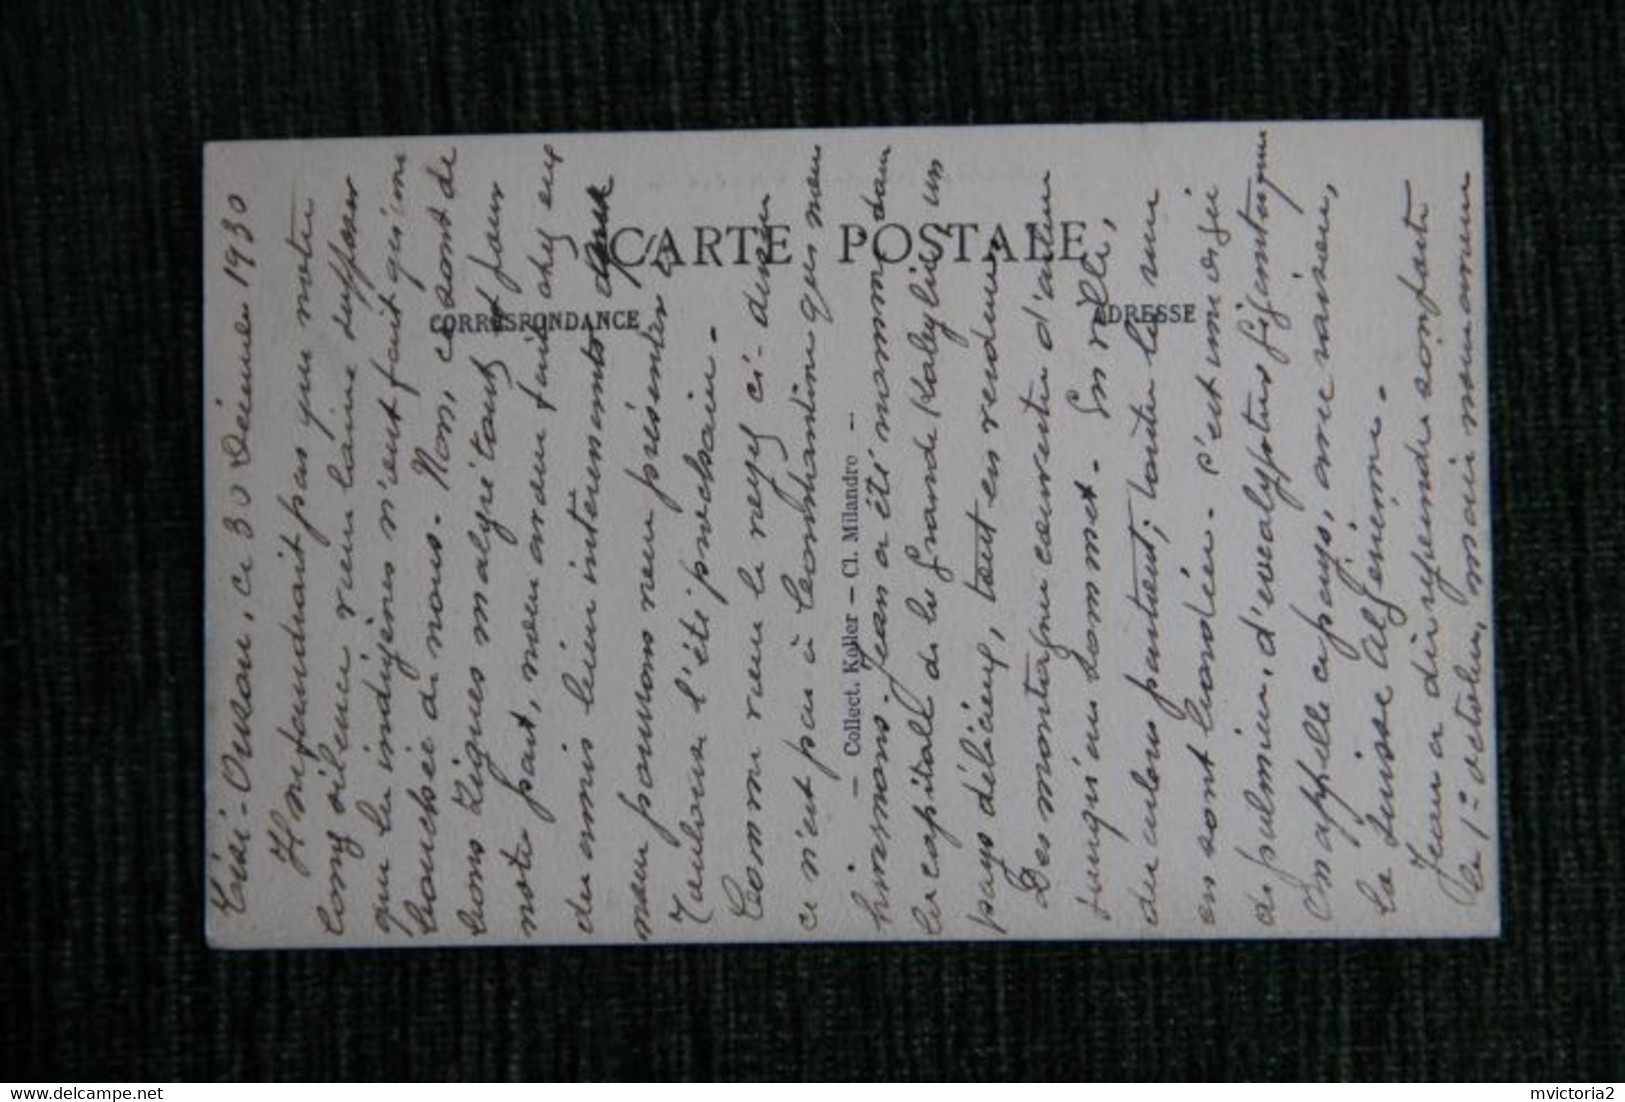 CARTE POSTALE
CORRESPONDANCE
ADRESSE
— Collect. Koller — Cl. Milandre —
Tizi-Ouzou, ce 30 Décembre 1930
Il ne faudrait pas que notre
long silence vous laisse supposer
que les indigènes n'ont fait qu'une
bouchée de nous. Non, ce sont de
bons zigues malgré tout, et pour
notre part, nous avons fait chez eux
des amis bien intéressants que
nous pouvons vous présenter à
Toulouse l'été prochain.
Comme vous le voyez ci-dessus
ce n'est pas à Constantine que nous
hivernons. Jean a été nommé dans
la capitale de la Grande Kabylie un
pays délicieux, tout en verdure.
Des montagnes couvertes d'arbres
jusqu'au sommet. En ville,
des arbres partout, toutes les rues
en sont bordées. C'est une orgie
de palmiers, d'eucalyptus gigantesques
On appelle ce pays, avec raison,
la Suisse Algérienne.
Jean a dû reprendre son poste
le 1er octobre, mais nous avons
mvictoria2